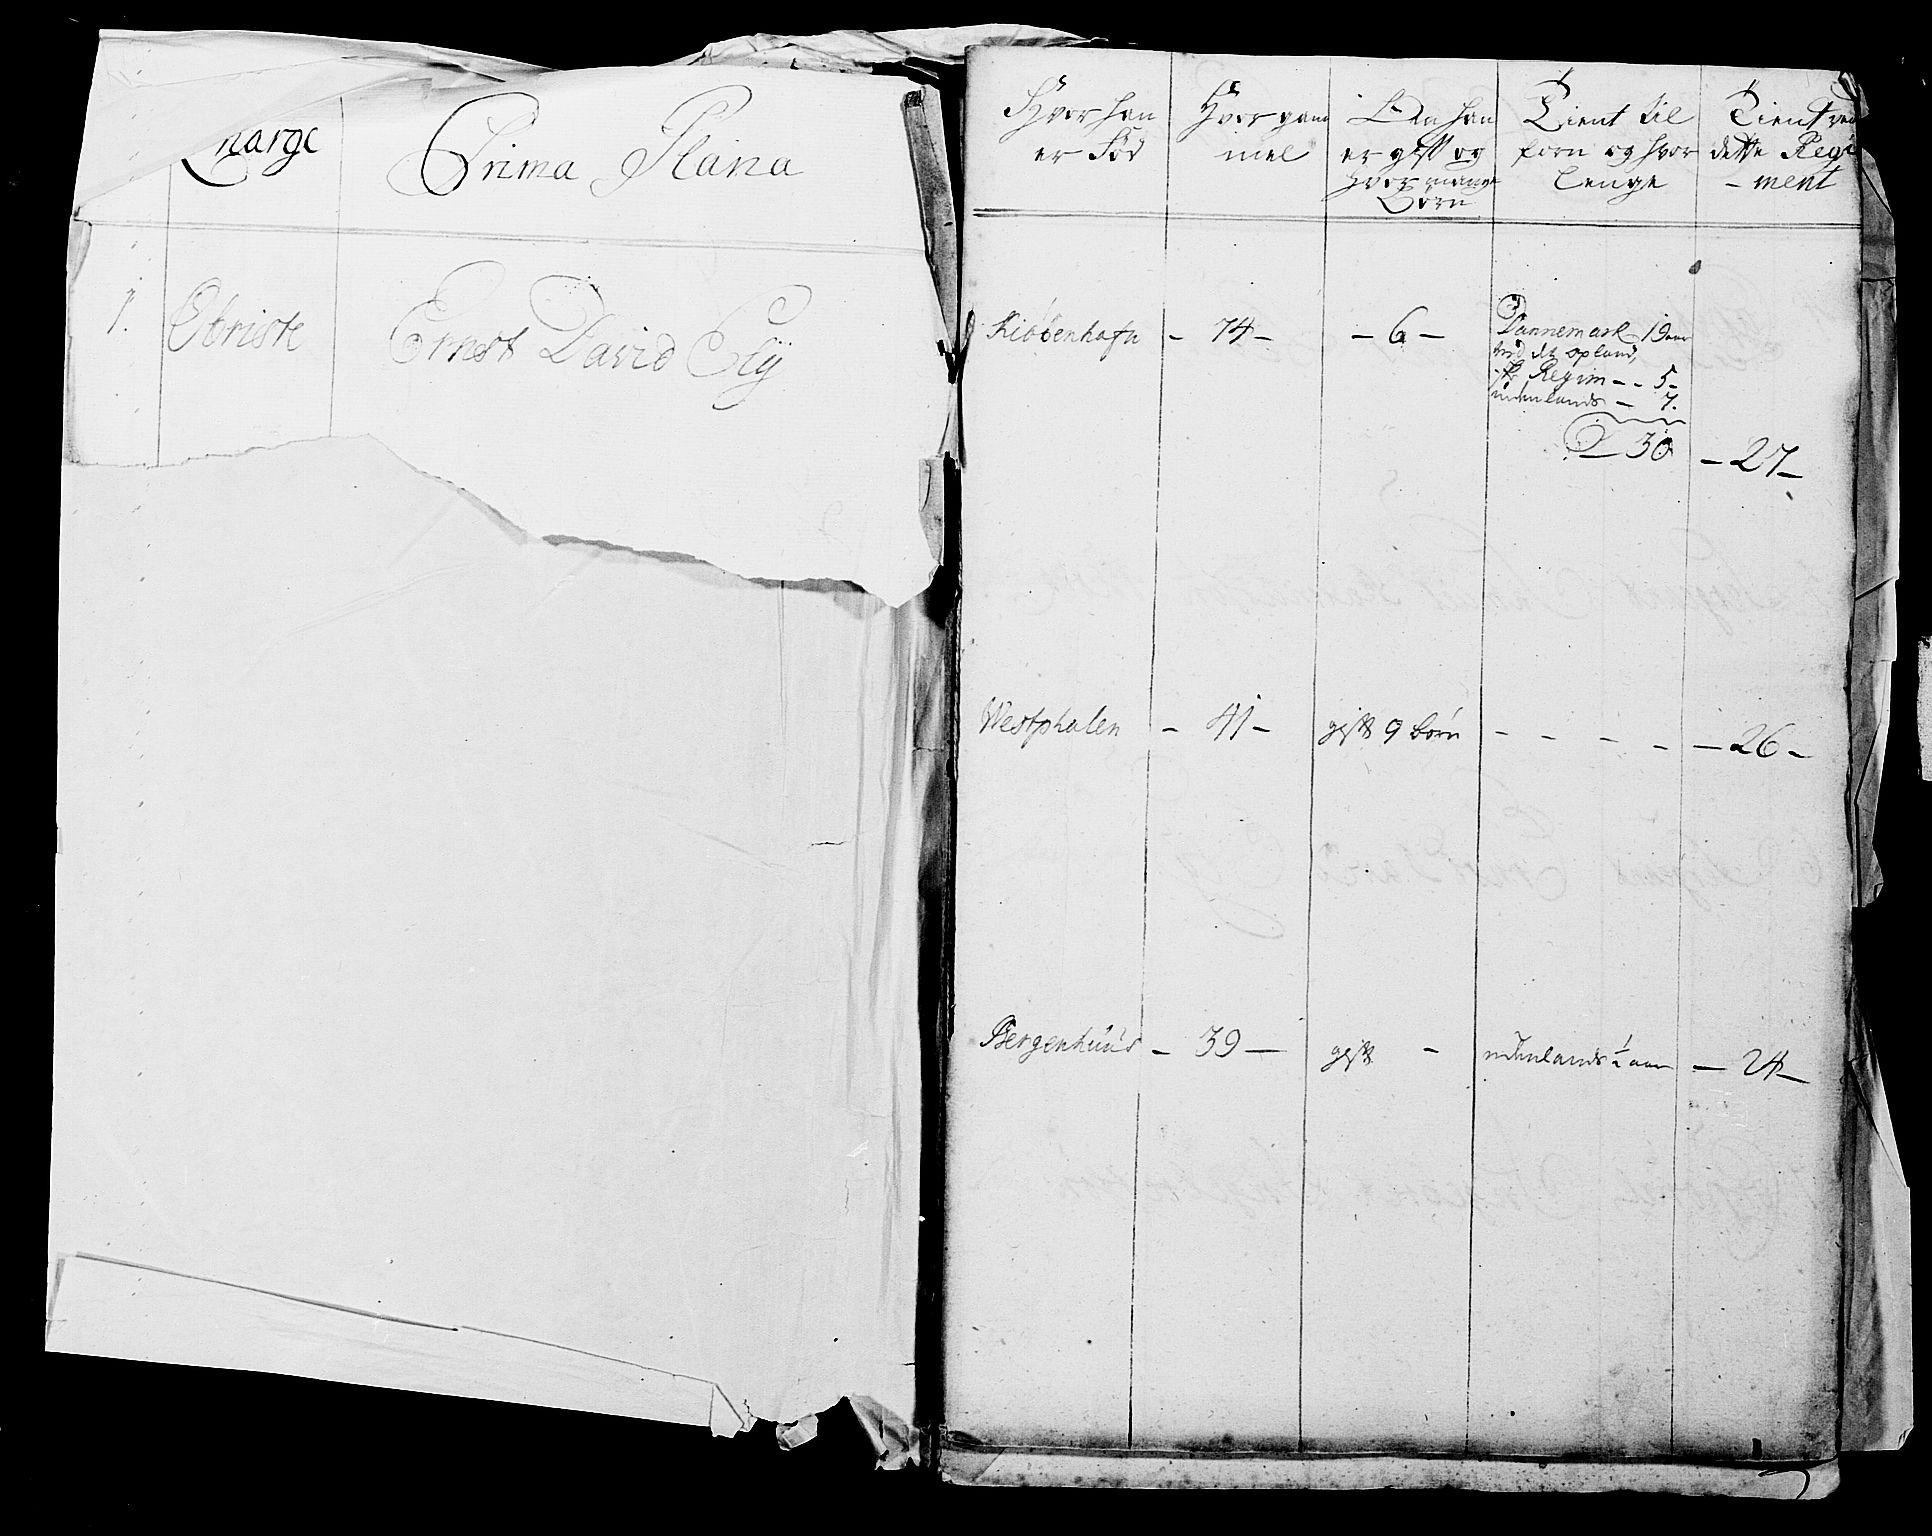 Charge
Prima Plana
1. Obriste Ernst David Ely
Hvor han
er Fød
Hvor gam
mel
Om han
er gift og
hvor mange
Børn
Tient til
forn og hvor
lenge
Tient ved
dette Regi
- ment
Kiøbenhafn - 74 - - 6 -
Dannemark 19 aar
ved det opland,
sk: Regim - - 5 -
indenlands - 7.
30 - 27 -
Westphalen - 41 - gift 9 børn - - - - - 26 -
Bergenhuus - 39 - gift - indenlands 1/2 aar - 24 -